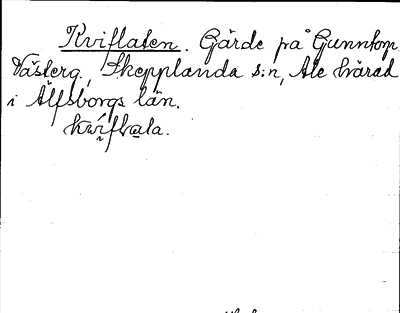 Kviflaten. Gärde på Gunntorp
Västerg., Skepplanda s:n, Ale härad
i Älfsborgs län.